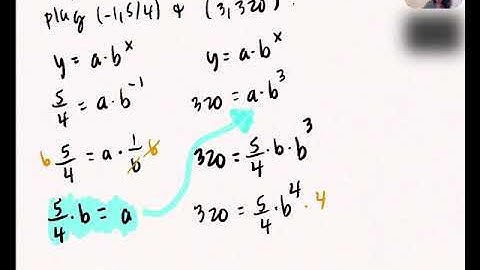 plug (-1, 5/4) & (3, 320).
y = a · b^x
5/4 = a · b^-1
b 5/4 = a · 1/b b
5/4 · b = a
y = a · b^x
320 = a · b^3
320 = 5/4 · b · b^3
320 = 5/4 · b^4 · 4